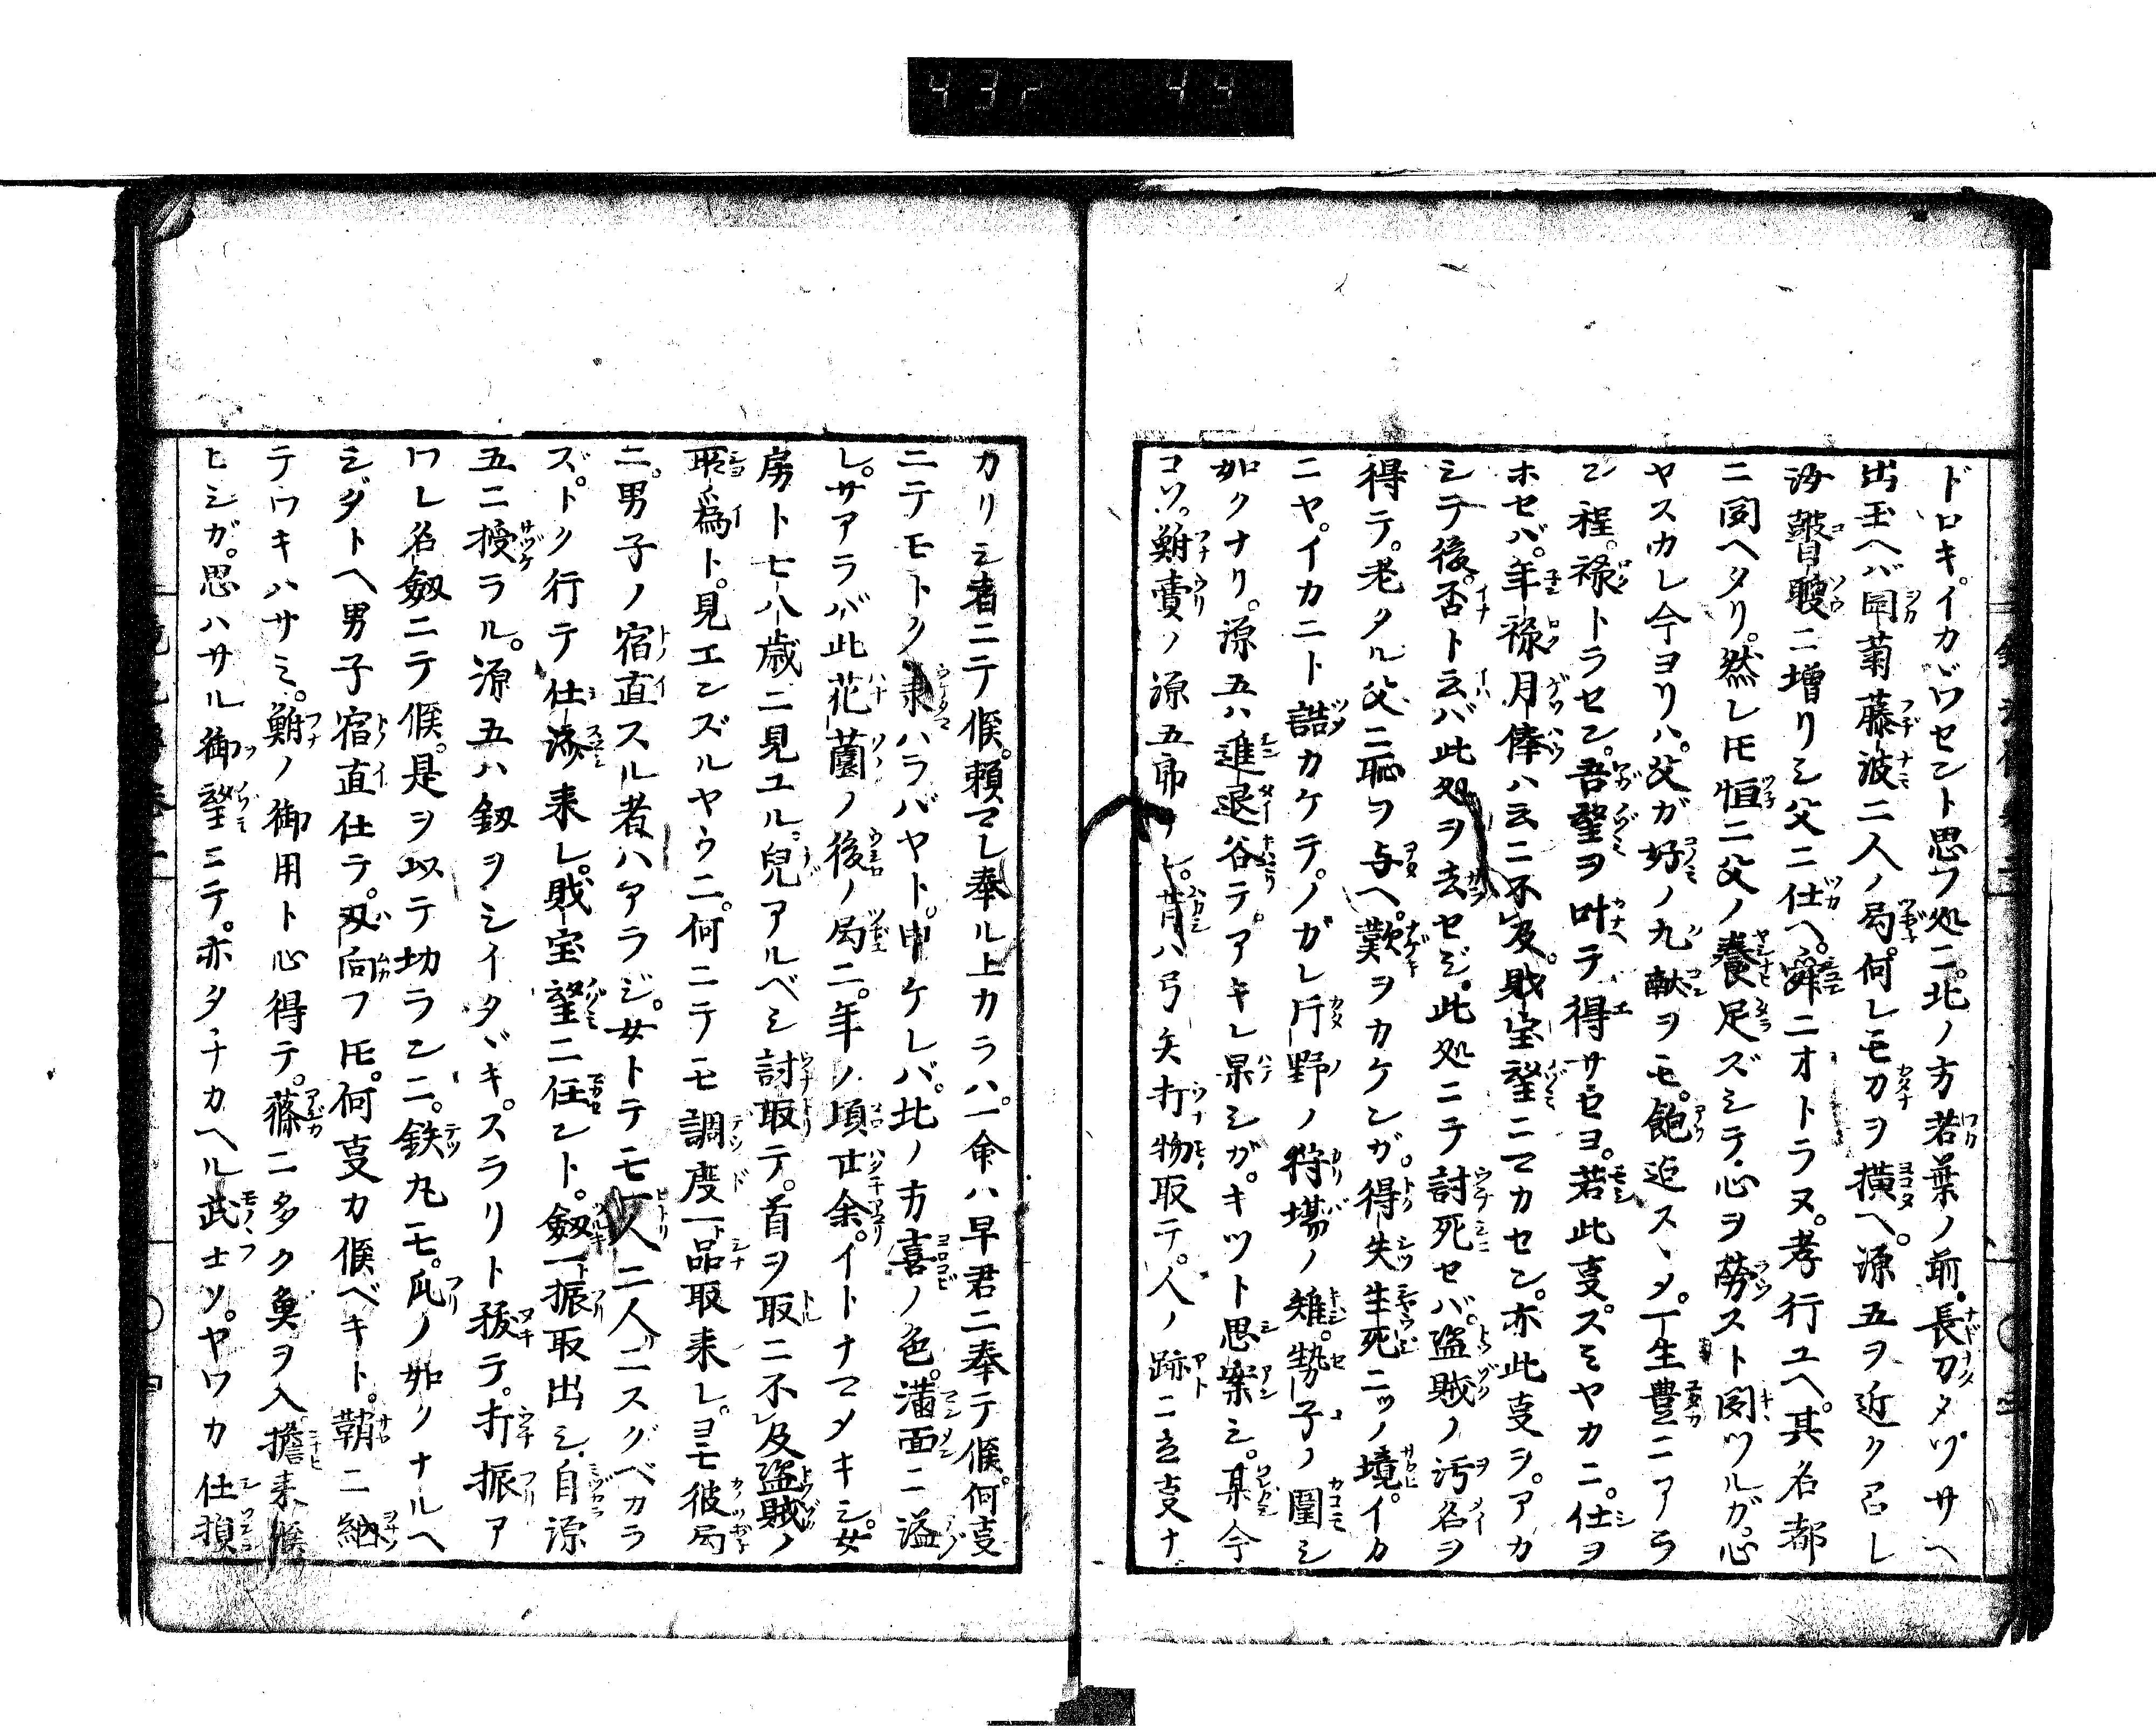 ドロキ。イカヾワセント思フ処ニ。北ノ方若葉ノ前。長刀タヅサヘ
出玉ヘバ同菊藤波二人ノ局。何レモカヲ横ヘ。源五ヲ近ク召シ
汝瞽瞍ニ増リシ父ニ仕ヘ。舜ニオトラヌ。孝行ユヘ。其名都
ニ聞ヘタリ。然レ𪜈恒ニ父ノ養足ズシテ心ヲ勞スト聞ツルガ。心
ヤスカレ今ヨリハ。父ガ好ノ九献ヲモ。飽迄スヽメ。一生豊ニアラ
ン程。禄トラセン。吾望ヲ叶テ得サセヨ。若此叓スミヤカニ。仕ヲ
ホセバ。年禄月俸ハ云ニ不及。財宝望ニマカセン。亦此叓ヲ。アカ
シテ後。否ト云バ此処ヲ去セジ。此処ニテ討死セバ。盗賊ノ汚名ヲ
得テ。老タル父ニ恥ヲ与ヘ。歎ヲカケンガ。得失生死ニツノ境。イカ
ニヤ。イカニト詰カケテ。ノガレ片野ノ狩場ノ雉。勢子ノ圍シ
如クナリ。源五ハ進退谷テ。アキレ果シガ。キツト思案シ。某今
コソ。鮒賣ノ源五郎ナレ。昔ハ弓矢打物取テ。人ノ跡ニ立叓ナ
カリシ者ニテ候。頼マレ奉ル上カラハ。一命ハ早君ニ奉テ候。何叓
ニテモトク承ハラバヤト。申ケレバ。北ノ方喜ノ色。滿面ニ溢
レ。サアラバ此花薗ノ後ノ局ニ。年ノ頃廿余。イトナマメキシ。女
房ト七八歳ニ見ユル。兒アルベシ討取テ。首ヲ取ニ不及盗賊ノ
所為ト。見エンズルヤウニ。何ニテモ調度一品取来レ。ヨモ彼局
ニ。男子ノ宿直スル者ハアラジ。女トテモ一人二人ニスグベカラ
ズ。トク行テ仕済来レ。財宝望ニ任ント。劔一振取出シ。自源
五ニ授ラル。源五ハ釼ヲシイタヾキ。スラリト抜テ。打振ア
ワレ名劔ニテ候。是ヲ以テ切ランニ。鉄丸モ。瓜ノ如クナルヘ
シ。タトヘ男子宿直仕ラ。刃向フ𪜈。何叓カ候ベキト。鞘ニ納
テワキハサミ。鮒ノ御用ト心得テ。蓧ニ多ク魚ヲ入擔来候
ヒシガ。思ハサル御望ミテ。亦タチカヘル武士ソ。ヤワカ仕損